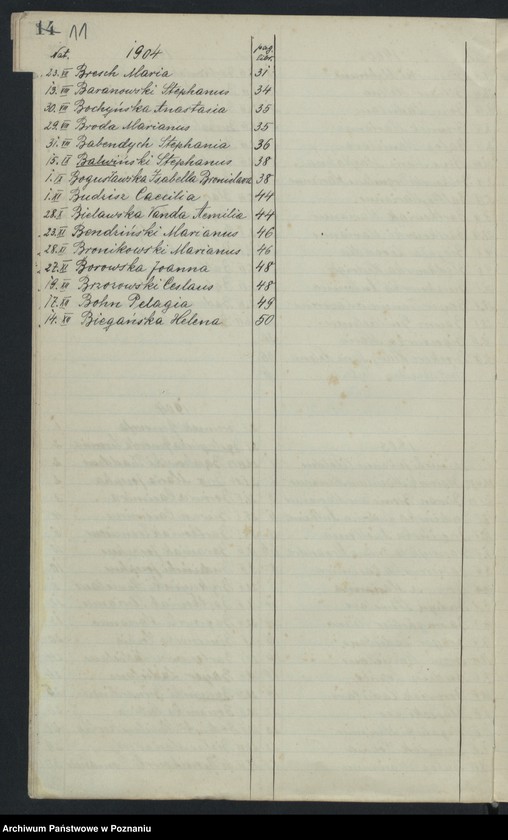 14 11
Nat. 1904 pag. libr.
23. VI Bresch Maria 31
13. VIII Baranowski Stephanus 34
30. VIII Bochyńska Anastasia 35
29. VIII Broda Marianus 35
31. VIII Babendych Stephania 36
15. IX Balwiński Stephanus 38
1. IX Bogusławska Izabella Bronislava 38
1. XI Budzisz Caecilia 44
28. X Bielawska Vanda Aemilia 44
23. XI Bendziński Marianus 46
28. XI Bronikowski Marianus 46
27. XI Borowska Joanna 48
19. XII Brzozowski Ceslaus 48
17. XII Bohn Pelagia 49
14. XII Biegańska Helena 50
Archiwum Państwowe w Poznaniu